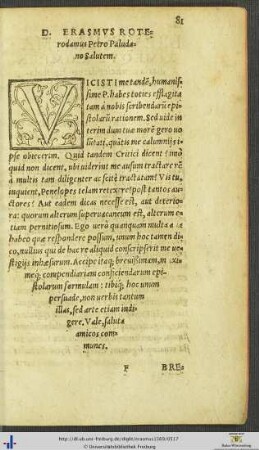 81
D. ERASMVS ROTE-
rodamus Petro Paluda-
no Salutem.
VICISTI me tandē, humanis-
sime P. habes toties efflagita
tam à nobis scribendarū epi-
stolarū rationem. Sed uide in
terim dum tuæ morē gero uo
lūtati, quātis me calumnijs i-
pse obiecerim. Quid tandem Critici dicent? imò
quid non dicent, ubi uiderint me ausum tractare rē
à multis tam diligenter ac scitè tractatam? Vis tu,
inquient, Penelopes telam retexere post tantos au-
ctores? Aut eadem dicas necesse est, aut deterio-
ra: quorum alterum superuacaneum est, alterum e-
tiam pernitiosum. Ego uerò quanquam multa
habeo quæ respondere possum, unum hoc tamen di-
co, nullius qui de hac re aliquid conscripserit me ue-
stigijs inhæsurum. Accipe itaq; breuissimam,
meq; compendiariam conficiendarum epi-
stolarum formulam: tibiq; hoc unum
persuade, non uerbis tantum
illas, sed arte etiam indi-
gere. Vale, saluta
amicos com-
munes.
F BRE-
http://dl.ub.uni-freiburg.de/diglit/erasmus1569/0117
© Universitätsbibliothek Freiburg
Baden-Württemberg